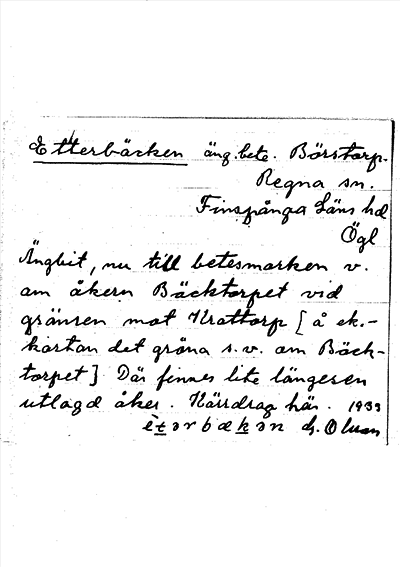 Etterbäcken äng. bete. Börstorp.
Regna sn.
Finspånga Läns hd
Ögl
Ängbit, nu till betesmarken v.
om åkern Bäcktorpet vid
gränsen mot Krattorp [å ek.-
kartan det gröna s.v. om Bäck-
torpet] Där finnes lite längesen
utlagd åker. Kärrdrag här. 1933
ètərbækən G. Olson